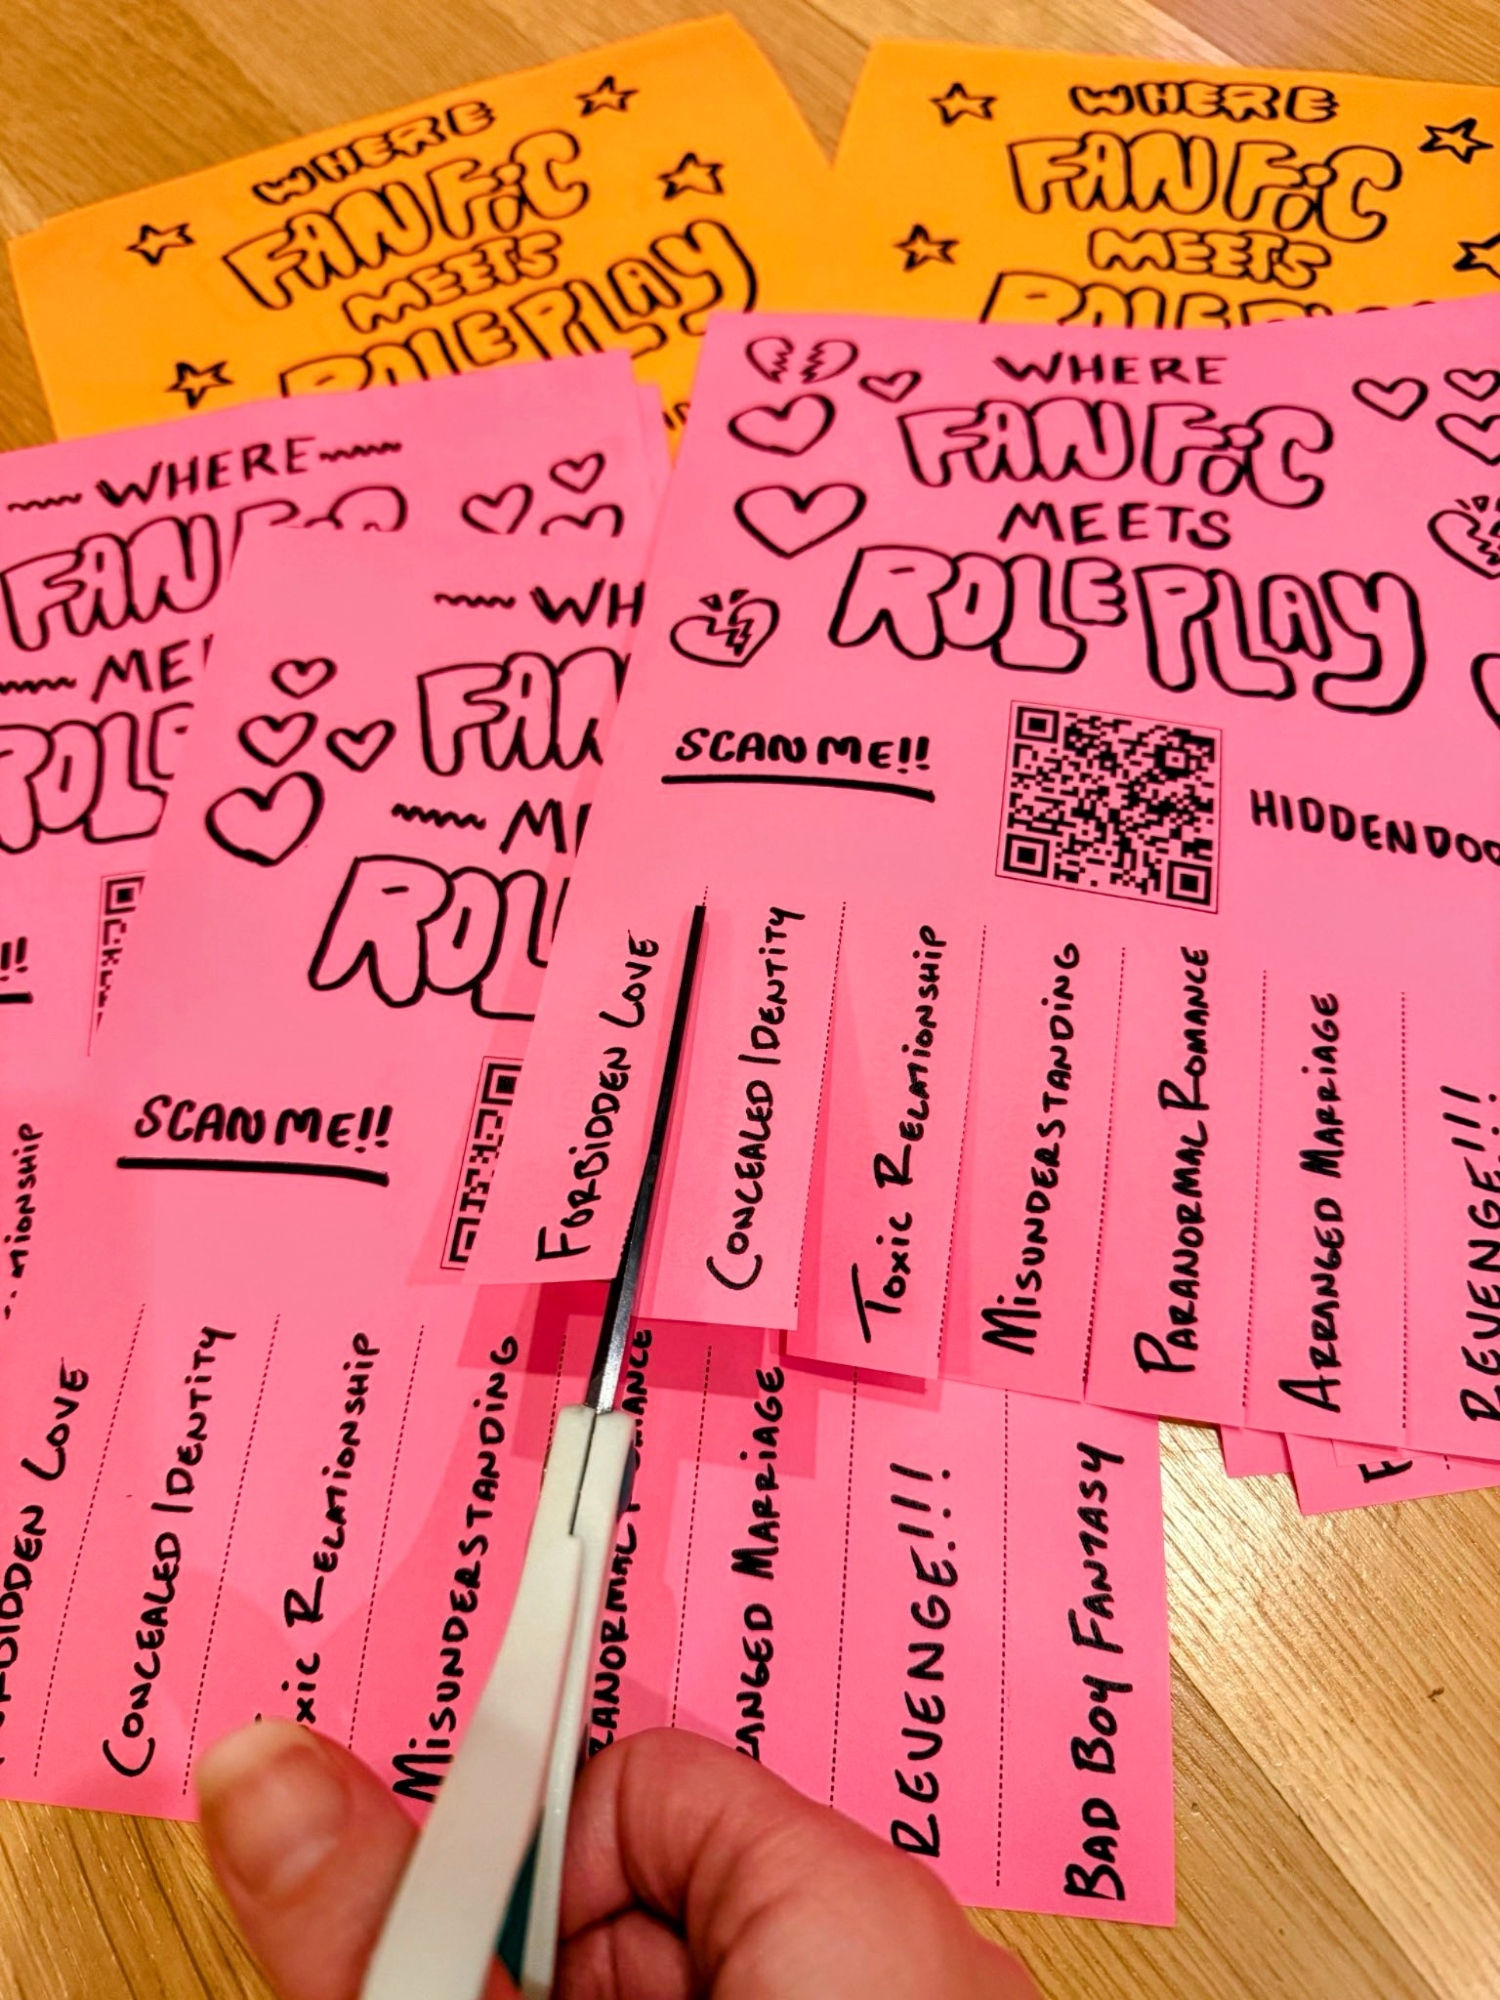 WHERE
FANFiC
MEETS
ROLEPLAY
WHERE
FANFiC
MEETS
WHERE
FANFiC
MEETS
ROLEPLAY
SCAN ME!!
FORBIDDEN LOVE
CONCEALED IDENTITY
TOXIC RELATIONSHIP
MISUNDERSTANDING
PARANORMAL ROMANCE
ARRANGED MARRIAGE
REVENGE!!!
WHERE
SCAN ME!!
LOVE
CONCEALED IDENTITY
RELATIONSHIP
MISUNDERSTANDING
MARRIAGE
REVENGE!!!
BAD BOY FANTASY